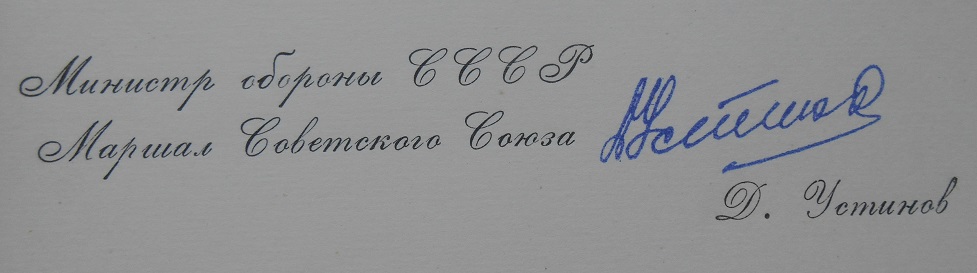 Министр обороны СССР
Маршал Советского Союза
Устинов
Д. Устинов